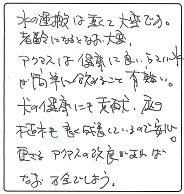 水の運搬は重くて大変です。
老齢になるとなお大変。
アクアマスは健康に良い、らしい水
が簡単に飲めること 有難い。
犬の健康にも貢献、庭の
植木も良く成長しているので安心。
更なる アクアマスの改良があれば
なお 万全でしょう。